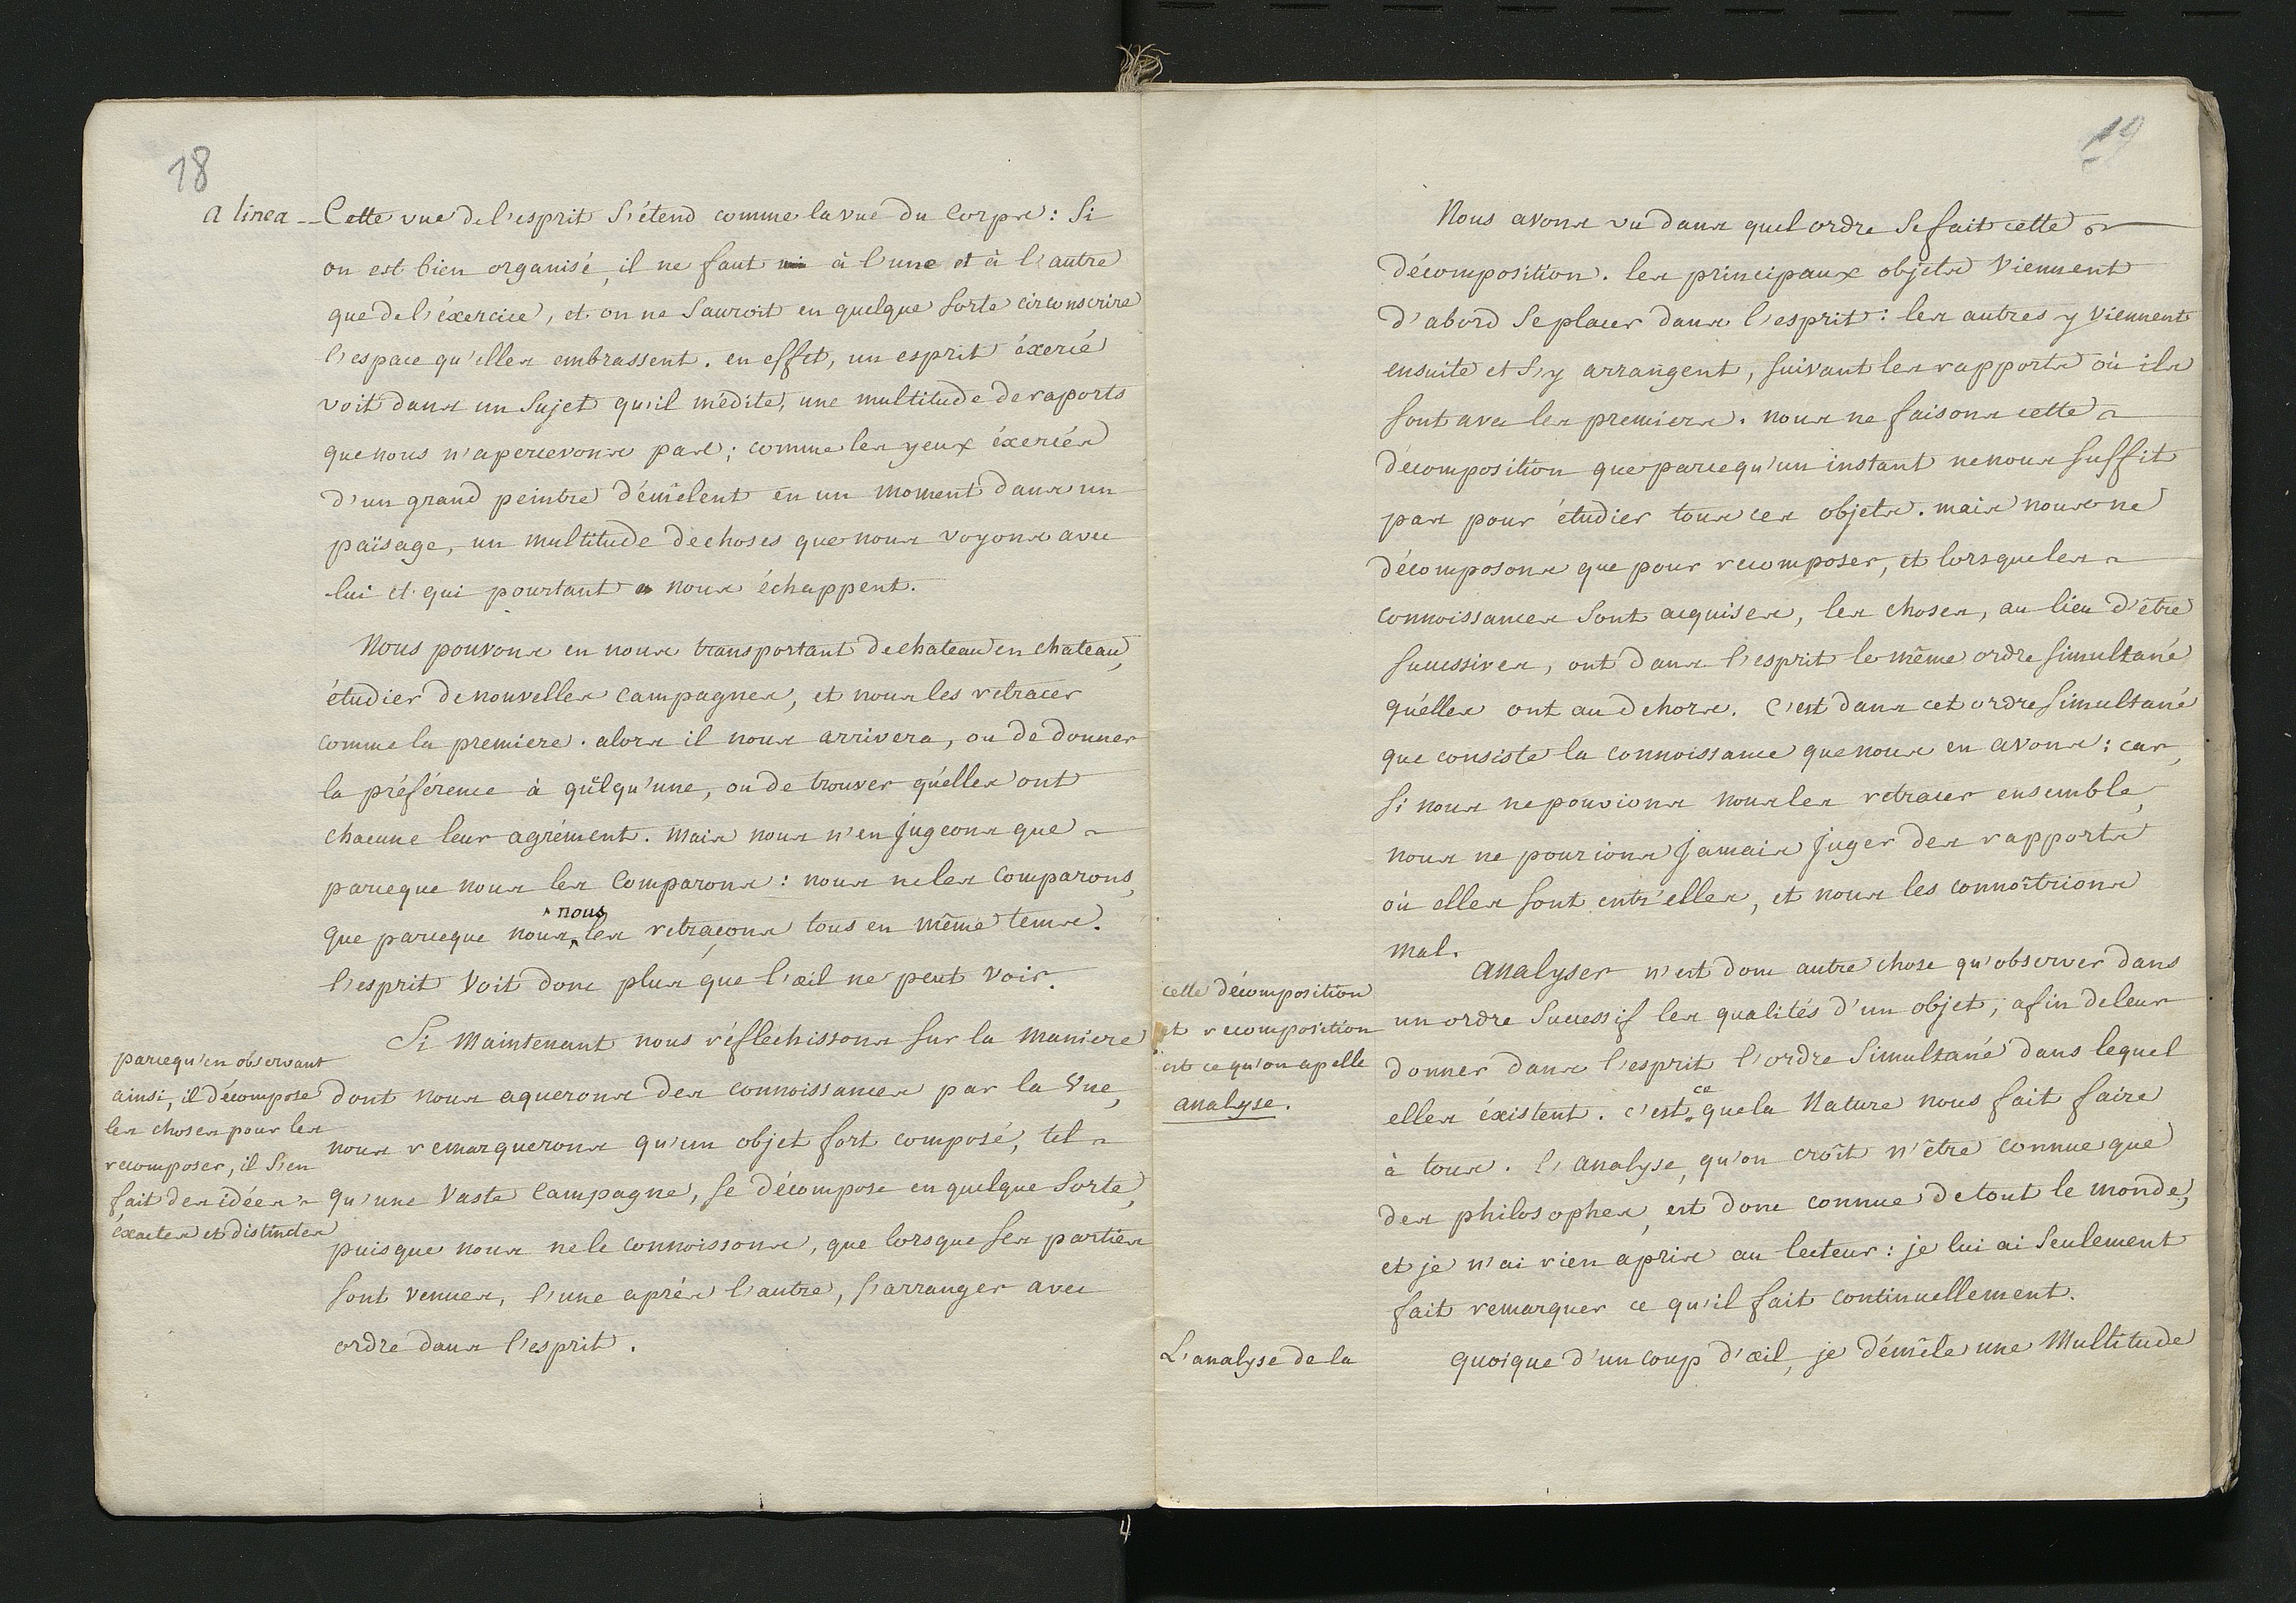 18
a linea -- Cette vue de l'esprit s'étend comme la vue du corps : si
on est bien organisé, il ne faut à l'une et à l'autre
que de l'éxercice, et on ne sauroit en quelque sorte circonscrire
l'espace qu'elles embrassent. en effet, un esprit éxercé
voit dans un sujet qu'il médite, une multitude de raports
que nous n'apercevons pas ; comme les yeux éxercés
d'un grand peintre démêlent en un moment dans un
païsage, un multitude de choses que nous voyons avec
lui et qui pourtant nous échappent.
Nous pouvons en nous transportant de chateau en chateau,
étudier de nouvelles campagnes, et nous les retracer
comme la premiere. alors il nous arrivera, ou de donner
la préférence à quélqu'une, ou de trouver qu'élles ont
chacune leur agrément. mais nous n'en jugeons que
parceque nous les comparons : nous ne les comparons,
que parceque nous nous les retraçons tous en même tems.
l'esprit voit donc plus que l'œil ne peut voir.
Si maintenant nous réfléchissons sur la maniere
dont nous aquerons des connoissances par la vue,
nous remarquerons qu'un objet fort composé, tel
qu'une vaste campagne, se décompose en quelque sorte,
puisque nous ne le connoissons, que lorsque ses parties
sont venues, l'une aprés l'autre, s'arranger avec
ordre dans l'esprit.
parcequ'en observant
ainsi, il décompose
les choses pour les
recomposer, il s'en
fait des idées
éxactes et distinctes
19
Nous avons vu dans quel ordre se fait cette
décomposition. les principaux objets viennent
d'abord se placer dans l'esprit : les autres y viennent
ensuite et s'y arrangent, suivant les rapports où ils
sont avec les premiers. nous ne faisons cette
décomposition que parcequ'un instant ne nous suffit
pas pour étudier tous ces objets. mais nous ne
décomposons que pour recomposer, et lorsque les
connoissances sont acquises, les choses, au lieu d'être
successives, ont dans l'esprit le même ordre simultané
qu'élles ont au dehors. c'est dans cet ordre simultané
que consiste la connoissance que nous en avons : car,
si nous ne pouvions nous les retracer ensemble,
nous ne pourions jamais juger des rapports
où elles sont entr'elles, et nous les connoîtrions
mal.
analyser n'est donc autre chose qu'observer dans
un ordre successif les qualités d'un objet, afin de leur
donner dans l'esprit l'ordre simultané dans lequel
elles éxistent. c'est ce que la Nature nous fait faire
à tous. l'analyse, qu'on croît n'être connue que
des philosophes, est donc connue de tout le monde,
et je n'ai rien apris au lecteur : je lui ai seulement
fait remarquer ce qu'il fait continuellement.
quoique d'un coup d'œil, je démêle une multitude
cette décomposition
et recomposition
est ce qu'on apelle
analyse.
L'analyse de la
4